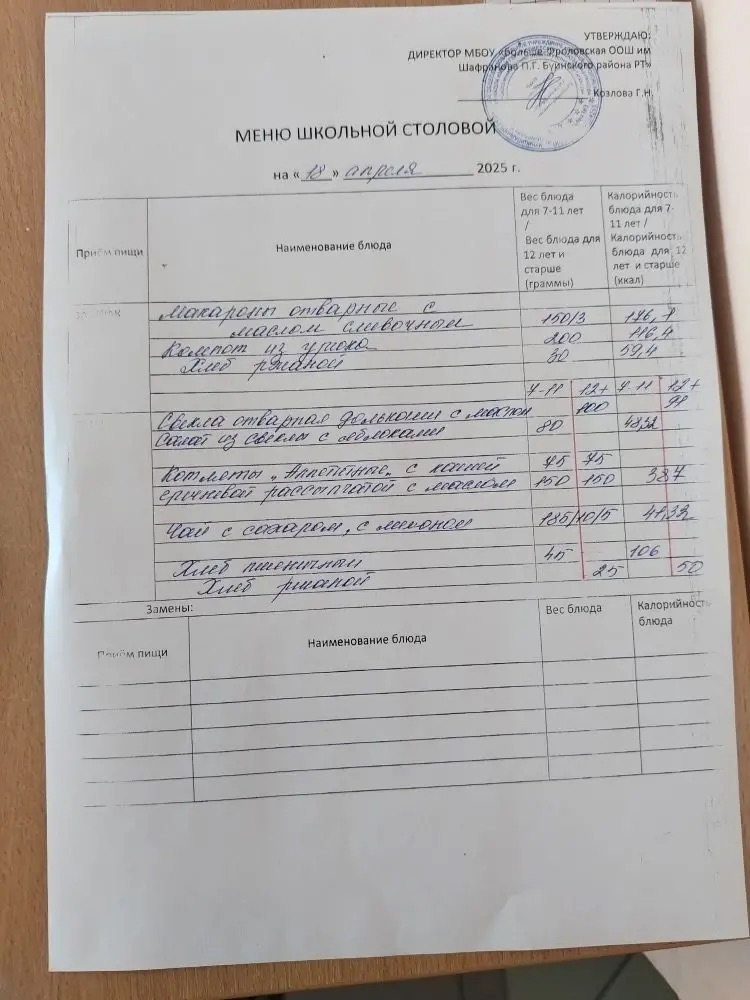 УТВЕРЖДАЮ:
ДИРЕКТОР МБОУ «Больше-Фроловская ООШ им
Шафранова П.Г. Буинского района РТ»
Козлова Г.Н.
МЕНЮ ШКОЛЬНОЙ СТОЛОВОЙ
на « 18 » апреля 2025 г.
Приём пищи
Наименование блюда
Вес блюда для 7-11 лет / Вес блюда для 12 лет и старше (граммы)
Калорийность блюда для 7-11 лет / Калорийность блюда для 12 лет и старше (ккал)
Макароны отварные с
маслом сливочным 150/3
Компот из 200 116,4
Хлеб ржаной 30 59,4
7-11 12+ 7-11 12+
Свекла отварная дольками с 100 91
Салат из свеклы с яблоками 80
Котлеты „Аппетитные" с кашей 75 75
гречневой рассыпчатой с маслом 150 150 387
Чай с сахаром, с лимоном 185/10/5 41,32
Хлеб пшеничный 45 106
Хлеб ржаной 25 50
Замены:
Приём пищи
Наименование блюда
Вес блюда
Калорийность блюда